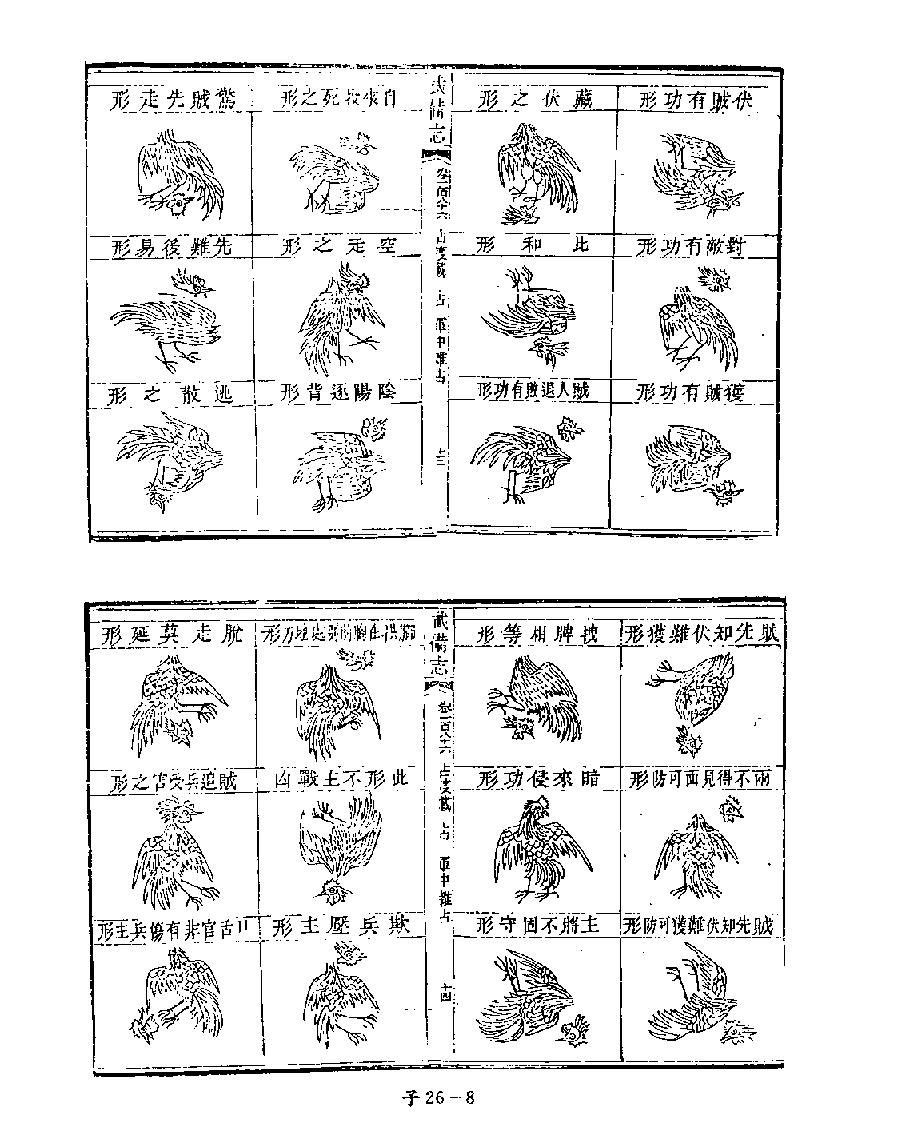 伏賊有功形
藏伏之形
對敵有功形
比和形
獲賊有功形
賊人退敗有功形
武備志
卷一百八十六
占度載
占
軍中雜占
十三
自來投死之形
驚賊先走形
空走之形
先難後易形
陰陽逐背形
逃散之形
賊先知伏難獲形
相等形
兩不得見面可防形
暗來侵功形
賊先知伏難獲可防形
主將不固守形
武備志
卷一百八十六
占度載
占
軍中雜占
十四
脫走莫延形
此形不主戰凶
賊追兵
之形
欺兵壓主形
口舌官非有傷兵主形
子26-8